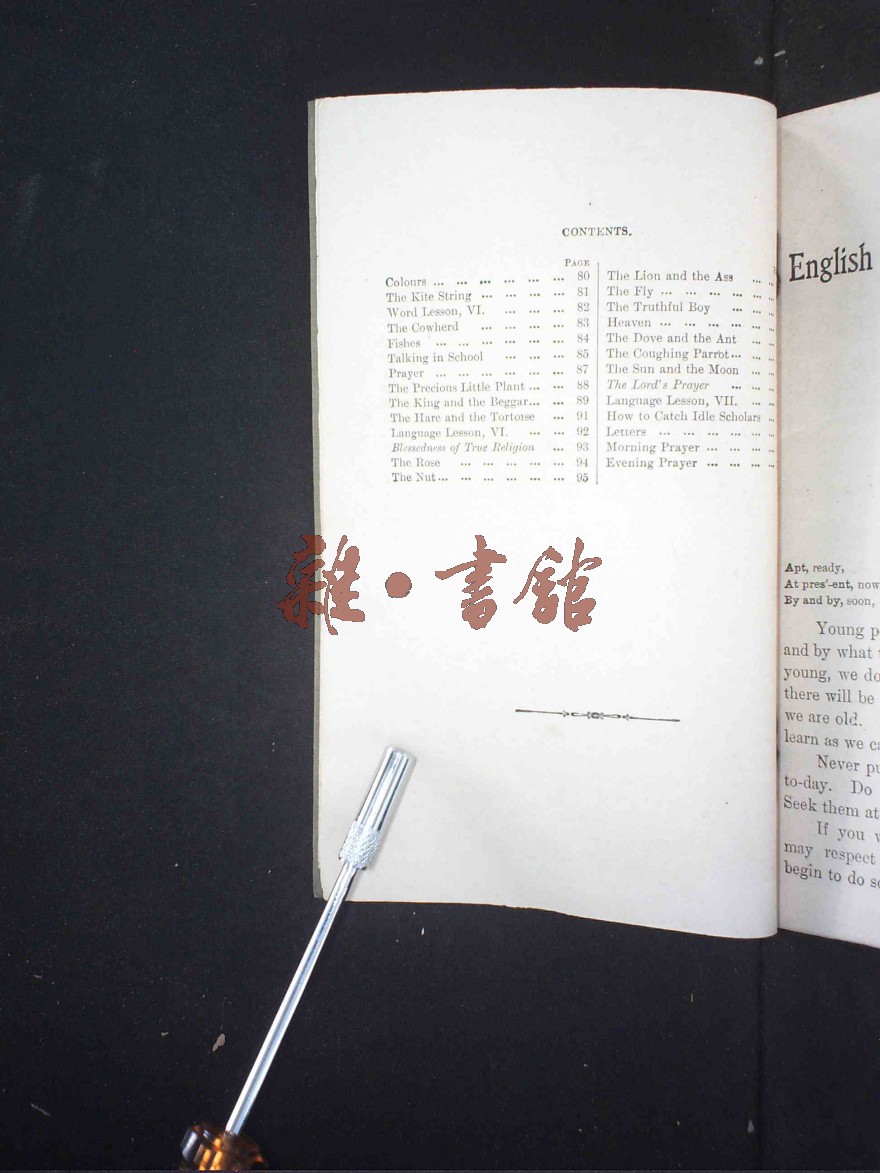 CONTENTS.
PAGE
Colours ... ... ... ... ... ... 80
The Kite String ... ... ... ... 81
Word Lesson, VI. ... ... ... 82
The Cowherd ... ... ... ... 83
Fishes ... ... ... ... ... ... 84
Talking in School ... ... ... 85
Prayer ... ... ... ... ... ... 87
The Precious Little Plant ... ... 88
The King and the Beggar... ... 89
The Hare and the Tortoise ... 91
Language Lesson, VI. ... ... 92
Blessedness of True Religion ... 93
The Rose ... ... ... ... ... 94
The Nut ... ... ... ... ... ... 95
The Lion and the Ass ... ...
The Fly ... ... ... ... ... ...
The Truthful Boy ... ...
Heaven ... ... ... ... ...
The Dove and the Ant ... ...
The Coughing Parrot... ... ...
The Sun and the Moon ... ...
The Lord's Prayer ... ...
Language Lesson, VII. ... ...
How to Catch Idle Scholars ...
Letters ... ... ... ... ... ...
Morning Prayer ... ... ... ...
Evening Prayer ... ... ... ...
雜·書館
English
Apt, ready,
At pres'-ent, now
By and by, soon,
Young
and by what
young, we do
there will be
we are old.
learn as we
Never
to-day. Do
Seek them at
If you
may respect
begin to do